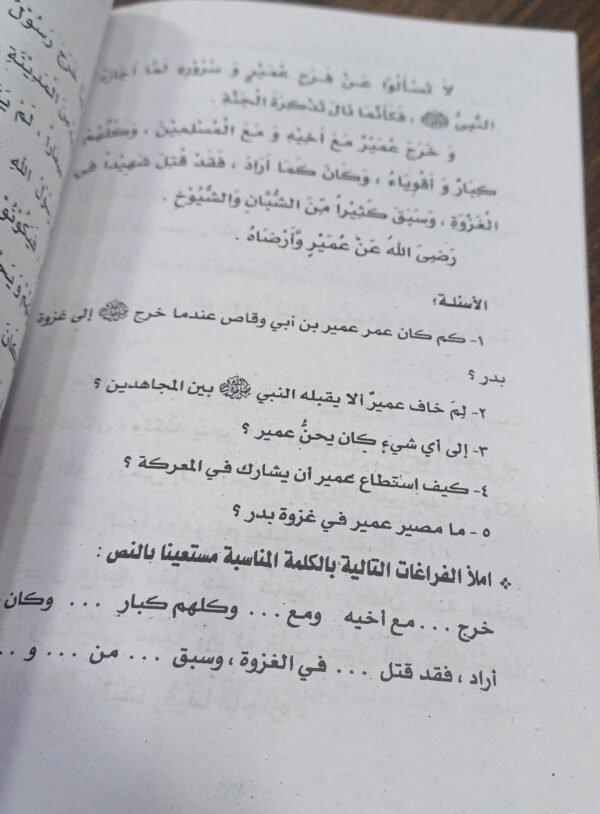 لاَ تَسْأَلُوْا عَنْ فَرَحِ عُمَيْرٍ وَ سُرُوْرِهِ لَمَّا أَجَازَهُ
النَّبِيُّ ﷺ ، فَكَأَنَّمَا نَالَ تَذْكِرَةَ الْجَنَّةِ .
وَ خَرَجَ عُمَيْرٌ مَعَ أَخِيْهِ وَ مَعَ الْمُسْلِمِيْنَ ، وَكُلُّهُمْ
كِبَارٌ وَ أَقْوِيَاءُ ، وَكَانَ كَمَا أَرَادَ ، فَقَدْ قُتِلَ شَهِيْداً فِي
الْغَزْوَةِ ، وَسَبَقَ كَثِيْراً مِّنَ الشُّبَّانِ وَالشُّيُوْخِ .
رَضِيَ اللهُ عَنْ عُمَيْرٍ وَّأَرْضَاهُ .
الأسئلة :
١- كم كان عمر عمير بن أبي وقاص عندما خرج ﷺ إلى غزوة
بدر ؟
٢- لِمَ خاف عميرٌ ألا يقبله النبي ﷺ بين المجاهدين ؟
٣- إلى أي شيءٍ كان يحنُّ عمير ؟
٤- كيف استطاع عمير أن يشارك في المعركة ؟
٥- ما مصير عمير في غزوة بدر ؟
❖ املأ الفراغات التالية بالكلمة المناسبة مستعينا بالنص :
خرج ... مع أخيه ومع ... وكلهم كبار ... وكان
أراد ، فقد قتل ... في الغزوة ، وسبق ... من ... و ..